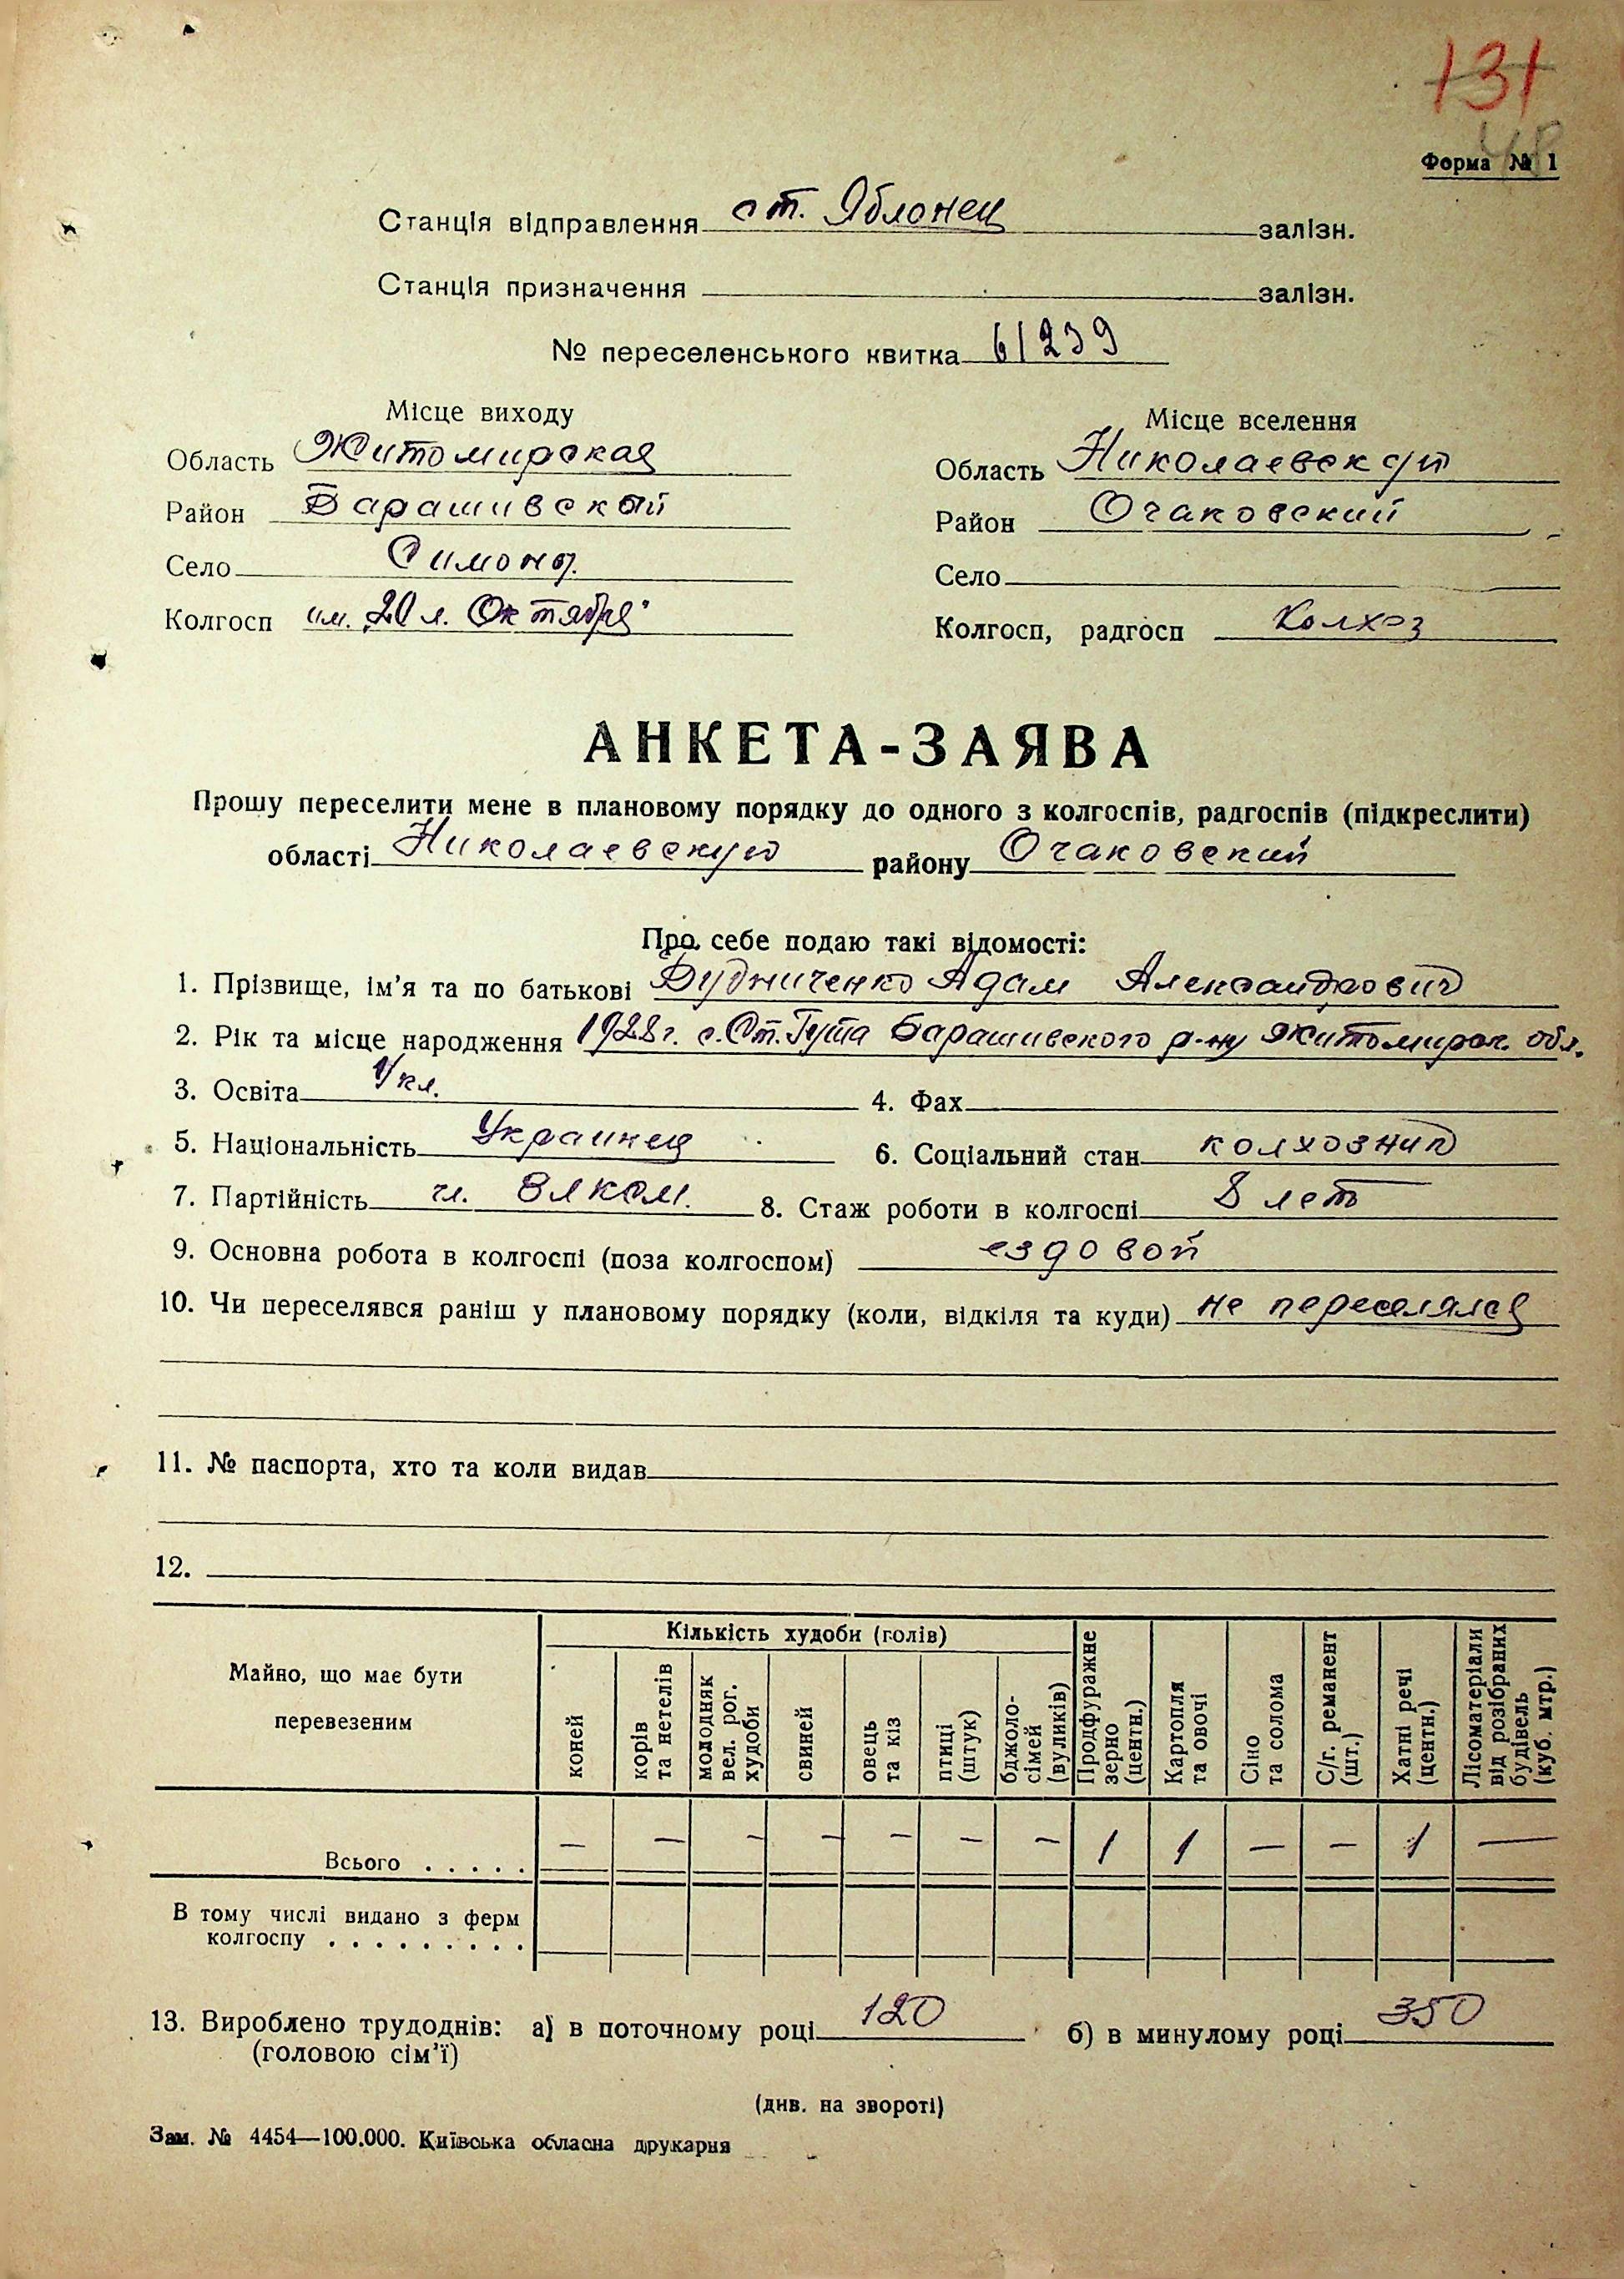 131
48
Форма № 1
Станція відправлення ст. Яблонец залізн.
Станція призначення залізн.
№ переселенського квитка 61239
Місце виходу
Місце вселення
Область Житомирская
Область Николаевскую
Район Барашивский
Район Очаковский
Село Симоны.
Село
Колгосп им. „20 л. Октября"
Колгосп, радгосп Колхоз
АНКЕТА-ЗАЯВА
Прошу переселити мене в плановому порядку до одного з колгоспів, радгоспів (підкреслити)
області Николаевскую району Очаковский
Про себе подаю такі відомості:
1. Прізвище, ім'я та по батькові Дудниченко Адам Александрович
2. Рік та місце народження 1928 г. с. Ст. Гута Барашивского р-ну Житомирск. обл.
3. Освіта кл.
4. Фах
5. Національність Украинец
6. Соціальний стан колхозник
7. Партійність чл. ВЛКСМ.
8. Стаж роботи в колгоспі 8 лет
9. Основна робота в колгоспі (поза колгоспом) ездовой
10. Чи переселявся раніш у плановому порядку (коли, відкіля та куди) не переселялся
11. № паспорта, хто та коли видав
12.
Майно, що має бути перевезеним
Кількість худоби (голів)
коней
корів та нетелів
молодняк вел. рог. худоби
свиней
овець та кіз
птиці (штук)
бджоло-сімей (вуликів)
Продфуражне зерно (центн.)
Картопля та овочі
Сіно та солома
С/г. реманент (шт.)
Хатні речі (центн.)
Лісоматеріали від розібраних будівель (куб. мтр.)
Всього . . . . . — — — — — — — 1 1 — — 1 —
В тому числі видано з ферм
колгоспу . . . . . . . . .
13. Вироблено трудоднів: а) в поточному році 120 б) в минулому році 350
(головою сім'ї)
(див. на звороті)
Зам. № 4454—100.000. Київська обласна друкарня